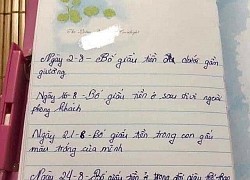 Ngày 2-8-Bố giấu tiền ở dưới gần
giường
Ngày 16-8-Bố giấu tiền ở sau tivi ngoài
phòng khách
Ngày 21-8-Bố giấu tiền trong con gấu
màu trắng của mình
Ngày 24-8-Bố giấu tiền ở trong